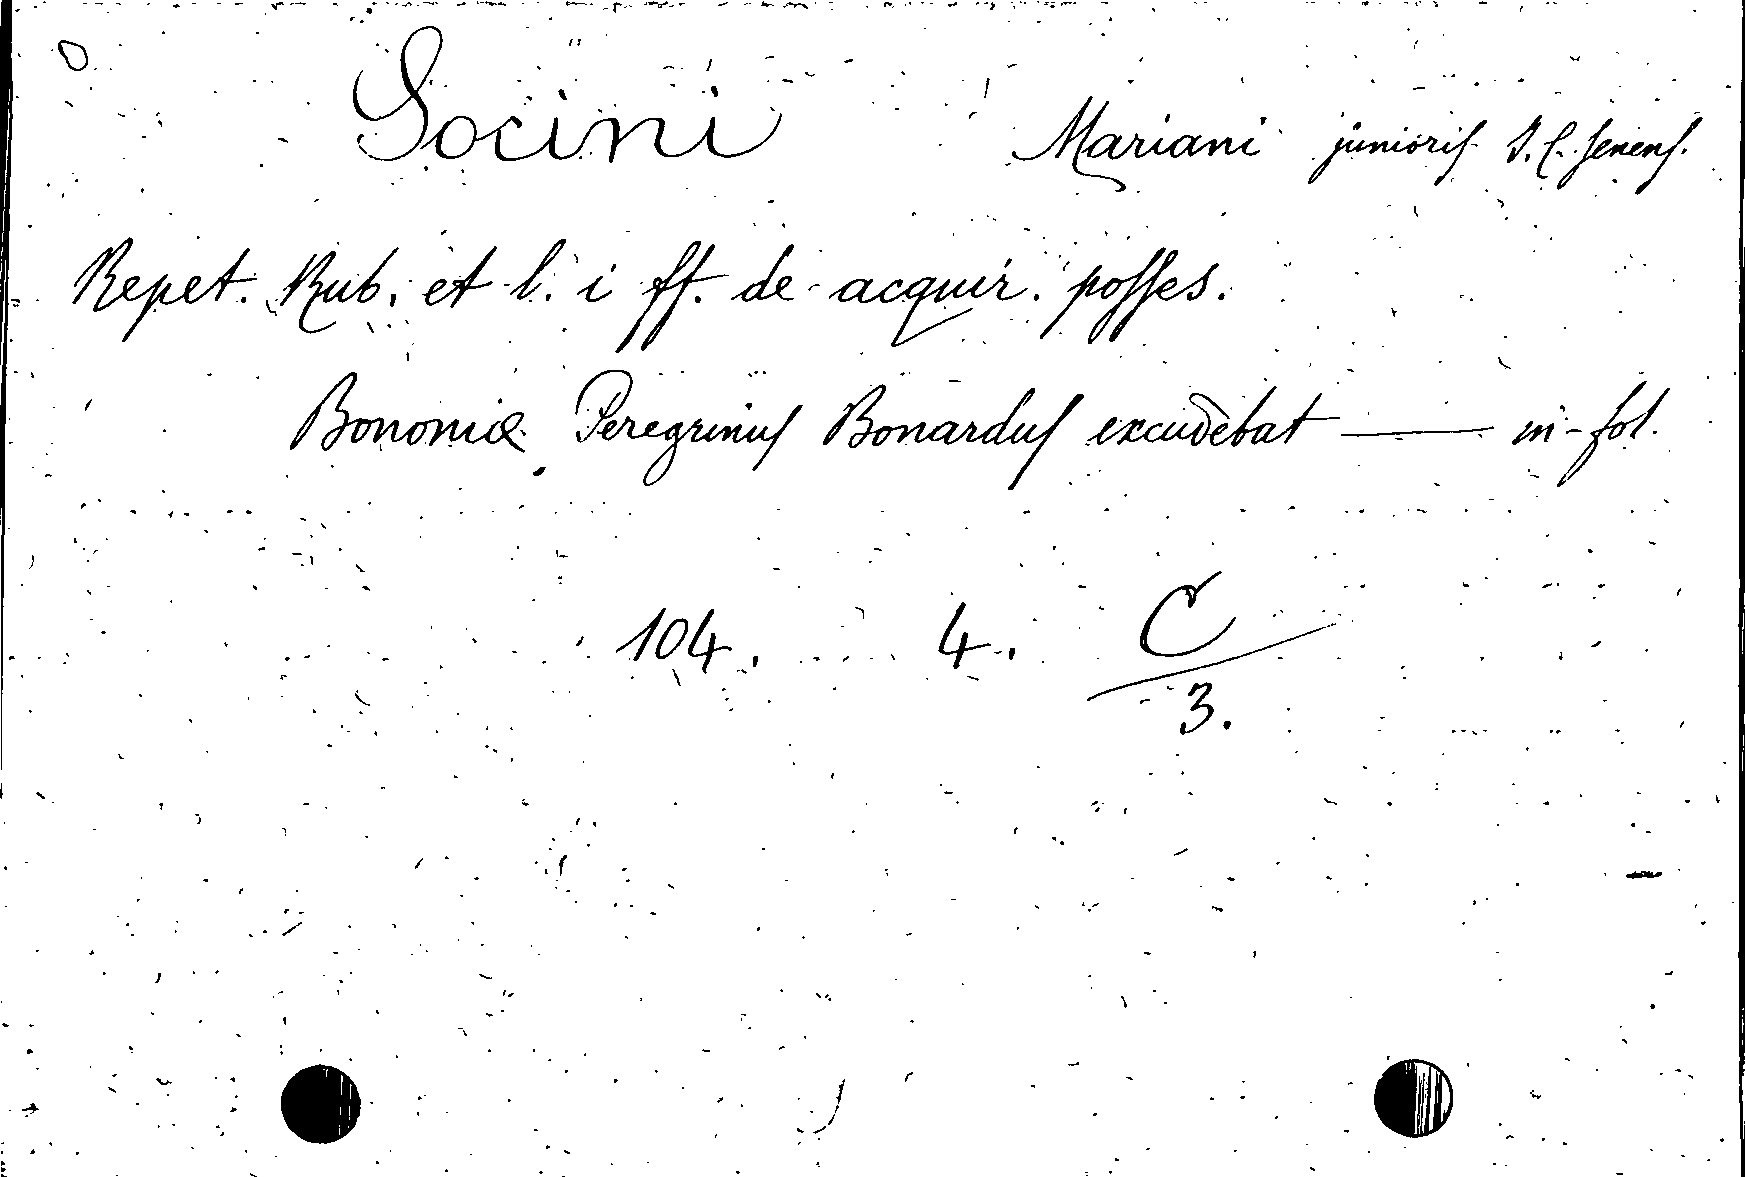 Socini Mariani junioris J. C. Senens.
Repet. Rub. et l. i ff. de acquir. posses.
Bononiæ Peregrinus Bonardus excudebat — in-fol.
104. 4. C
3.